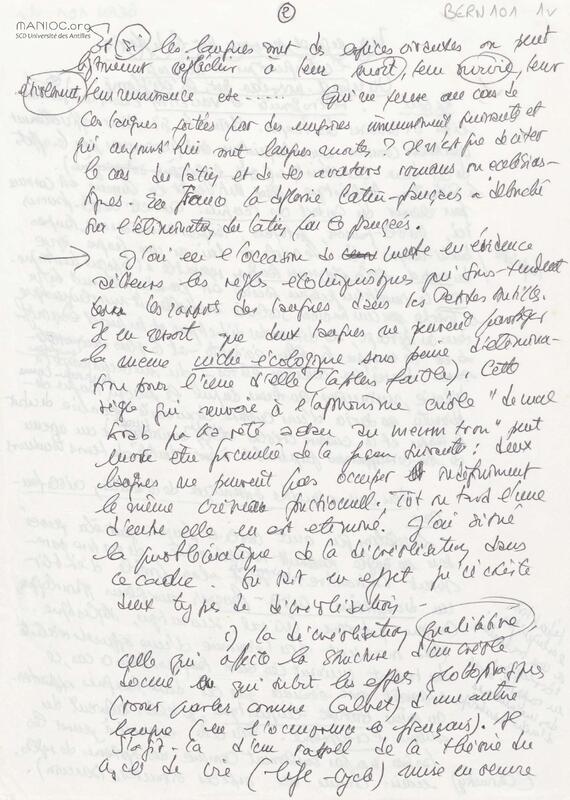 MANIOC.org
SCD Université des Antilles
(2)
BERN 101 1v
Et si les langues sont de espèces vivantes on peut
légitimement réfléchir à leur mort, leur survie, leur
étiolement, leur renaissance etc...... Qu'on pense au cas de
ces langues portées par des empires immensément puissants et
qui aujourd'hui sont langues mortes ? Il n'est que de citer
le cas du latin et de ses avatars romans ou ecclésias-
tiques. En France la diglossie latin-français a débouché
sur l'élimination du latin par le français.
→ J'ai eu l'occasion de mettre en évidence
ailleurs les règles écolinguistiques qui sous-tendent
les rapports des langues dans les Petites Antilles.
Il en ressort que deux langues ne peuvent partager
la même niche écologique sous peine d'élimina-
tion pour l'une d'elle (la plus faible). Cette
règle qui renvoie à l'aphorisme créole "dé mal
krab pa ka rété adan an menm trou" peut
encore être formulée de la façon suivante : deux
langues ne peuvent pas occuper indéfiniment
le même créneau fonctionnel. Tôt ou tard l'une
d'entre elle en est éliminée. J'ai situé
la problématique de la décréolisation dans
ce cadre. On sait en effet qu'il existe
deux types de décréolisation -
1) la décréolisation qualitative,
celle qui affecte la structure d'un créole
donné qui subit les effets glottophages
(pour parler comme Calvet) d'une autre
langue (en l'occurrence le français). Il
s'agit-là d'un rappel de la théorie du
cycle de vie (life-cycle) mise en oeuvre